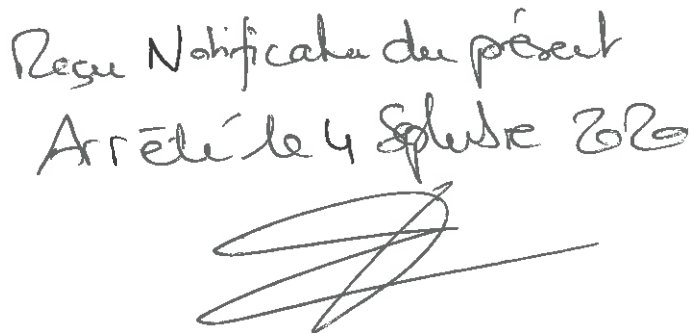 Reçu Notification du présent
Arrêté le 4 Septembre 2020